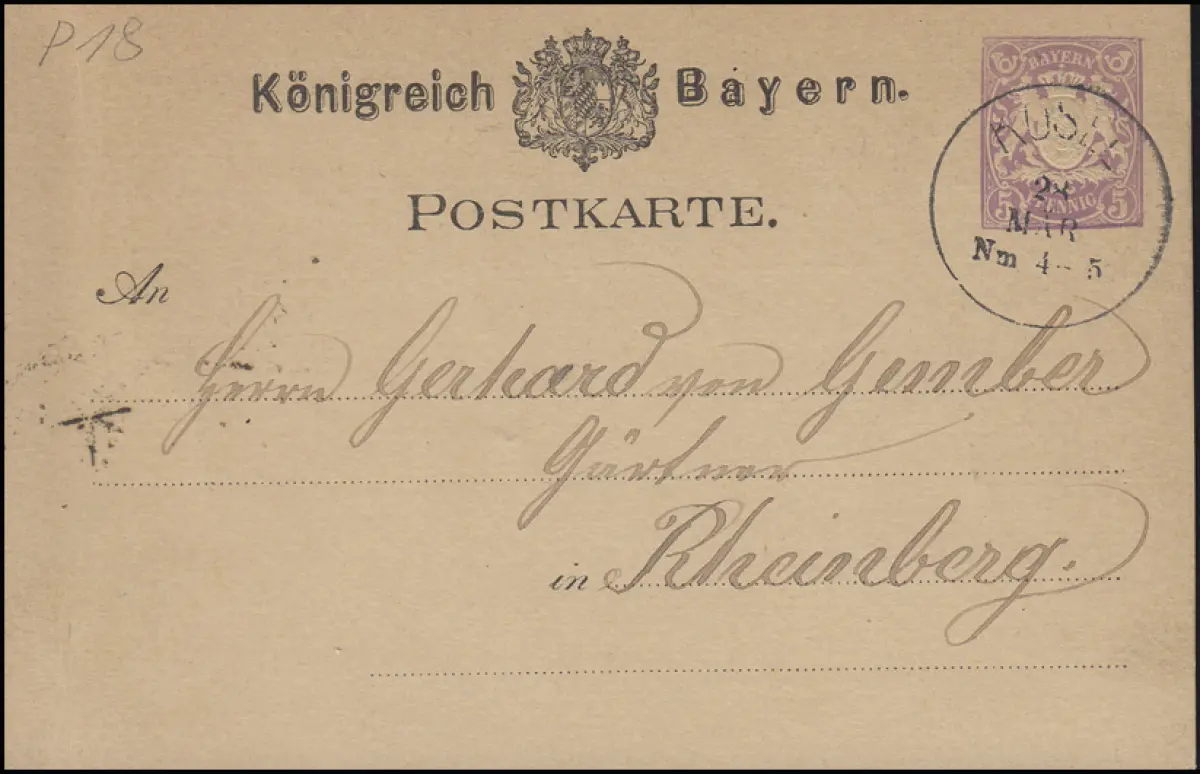 P 18
Königreich Bayern.
BAYERN
5 PFENNIG 5
KUSEL
28
MAR
Nm 4-5
POSTKARTE.
An
Herrn Gerhard von Gember
Gärtner
in Rheinberg.